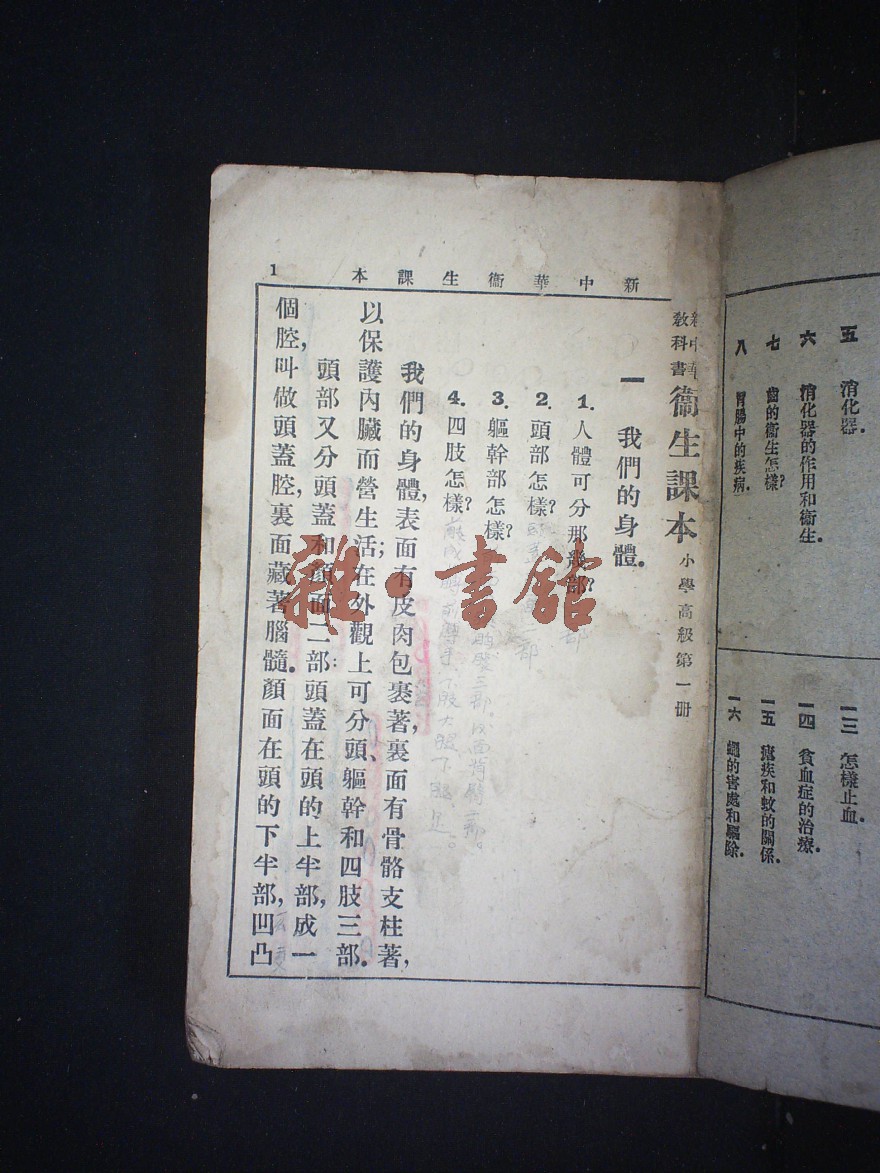 五 消化器.
六 消化器的作用和衞生.
七 齒的衞生怎樣?
八 胃腸中的疾病.
一三 怎樣止血.
一四 貧血症的治療.
一五 瘧疾和蚊的關係.
一六 蠅的害處和驅除.
新中華衞生課本
1
新中華
教科書
衞生課本
小學高級第一册
一 我們的身體.
1. 人體可分那幾部?
2. 頭部怎樣?
3. 軀幹部怎樣?
4. 四肢怎樣?
我們的身體,表面有皮肉包裹著,裏面有骨骼支柱著,
以保護內臟而營生活;在外觀上可分頭、軀幹和四肢三部.
頭部又分頭蓋和顏面二部:頭蓋在頭的上半部,成一
個腔,叫做頭蓋腔,裏面藏著腦髓.顏面在頭的下半部,凹凸
雜·書館